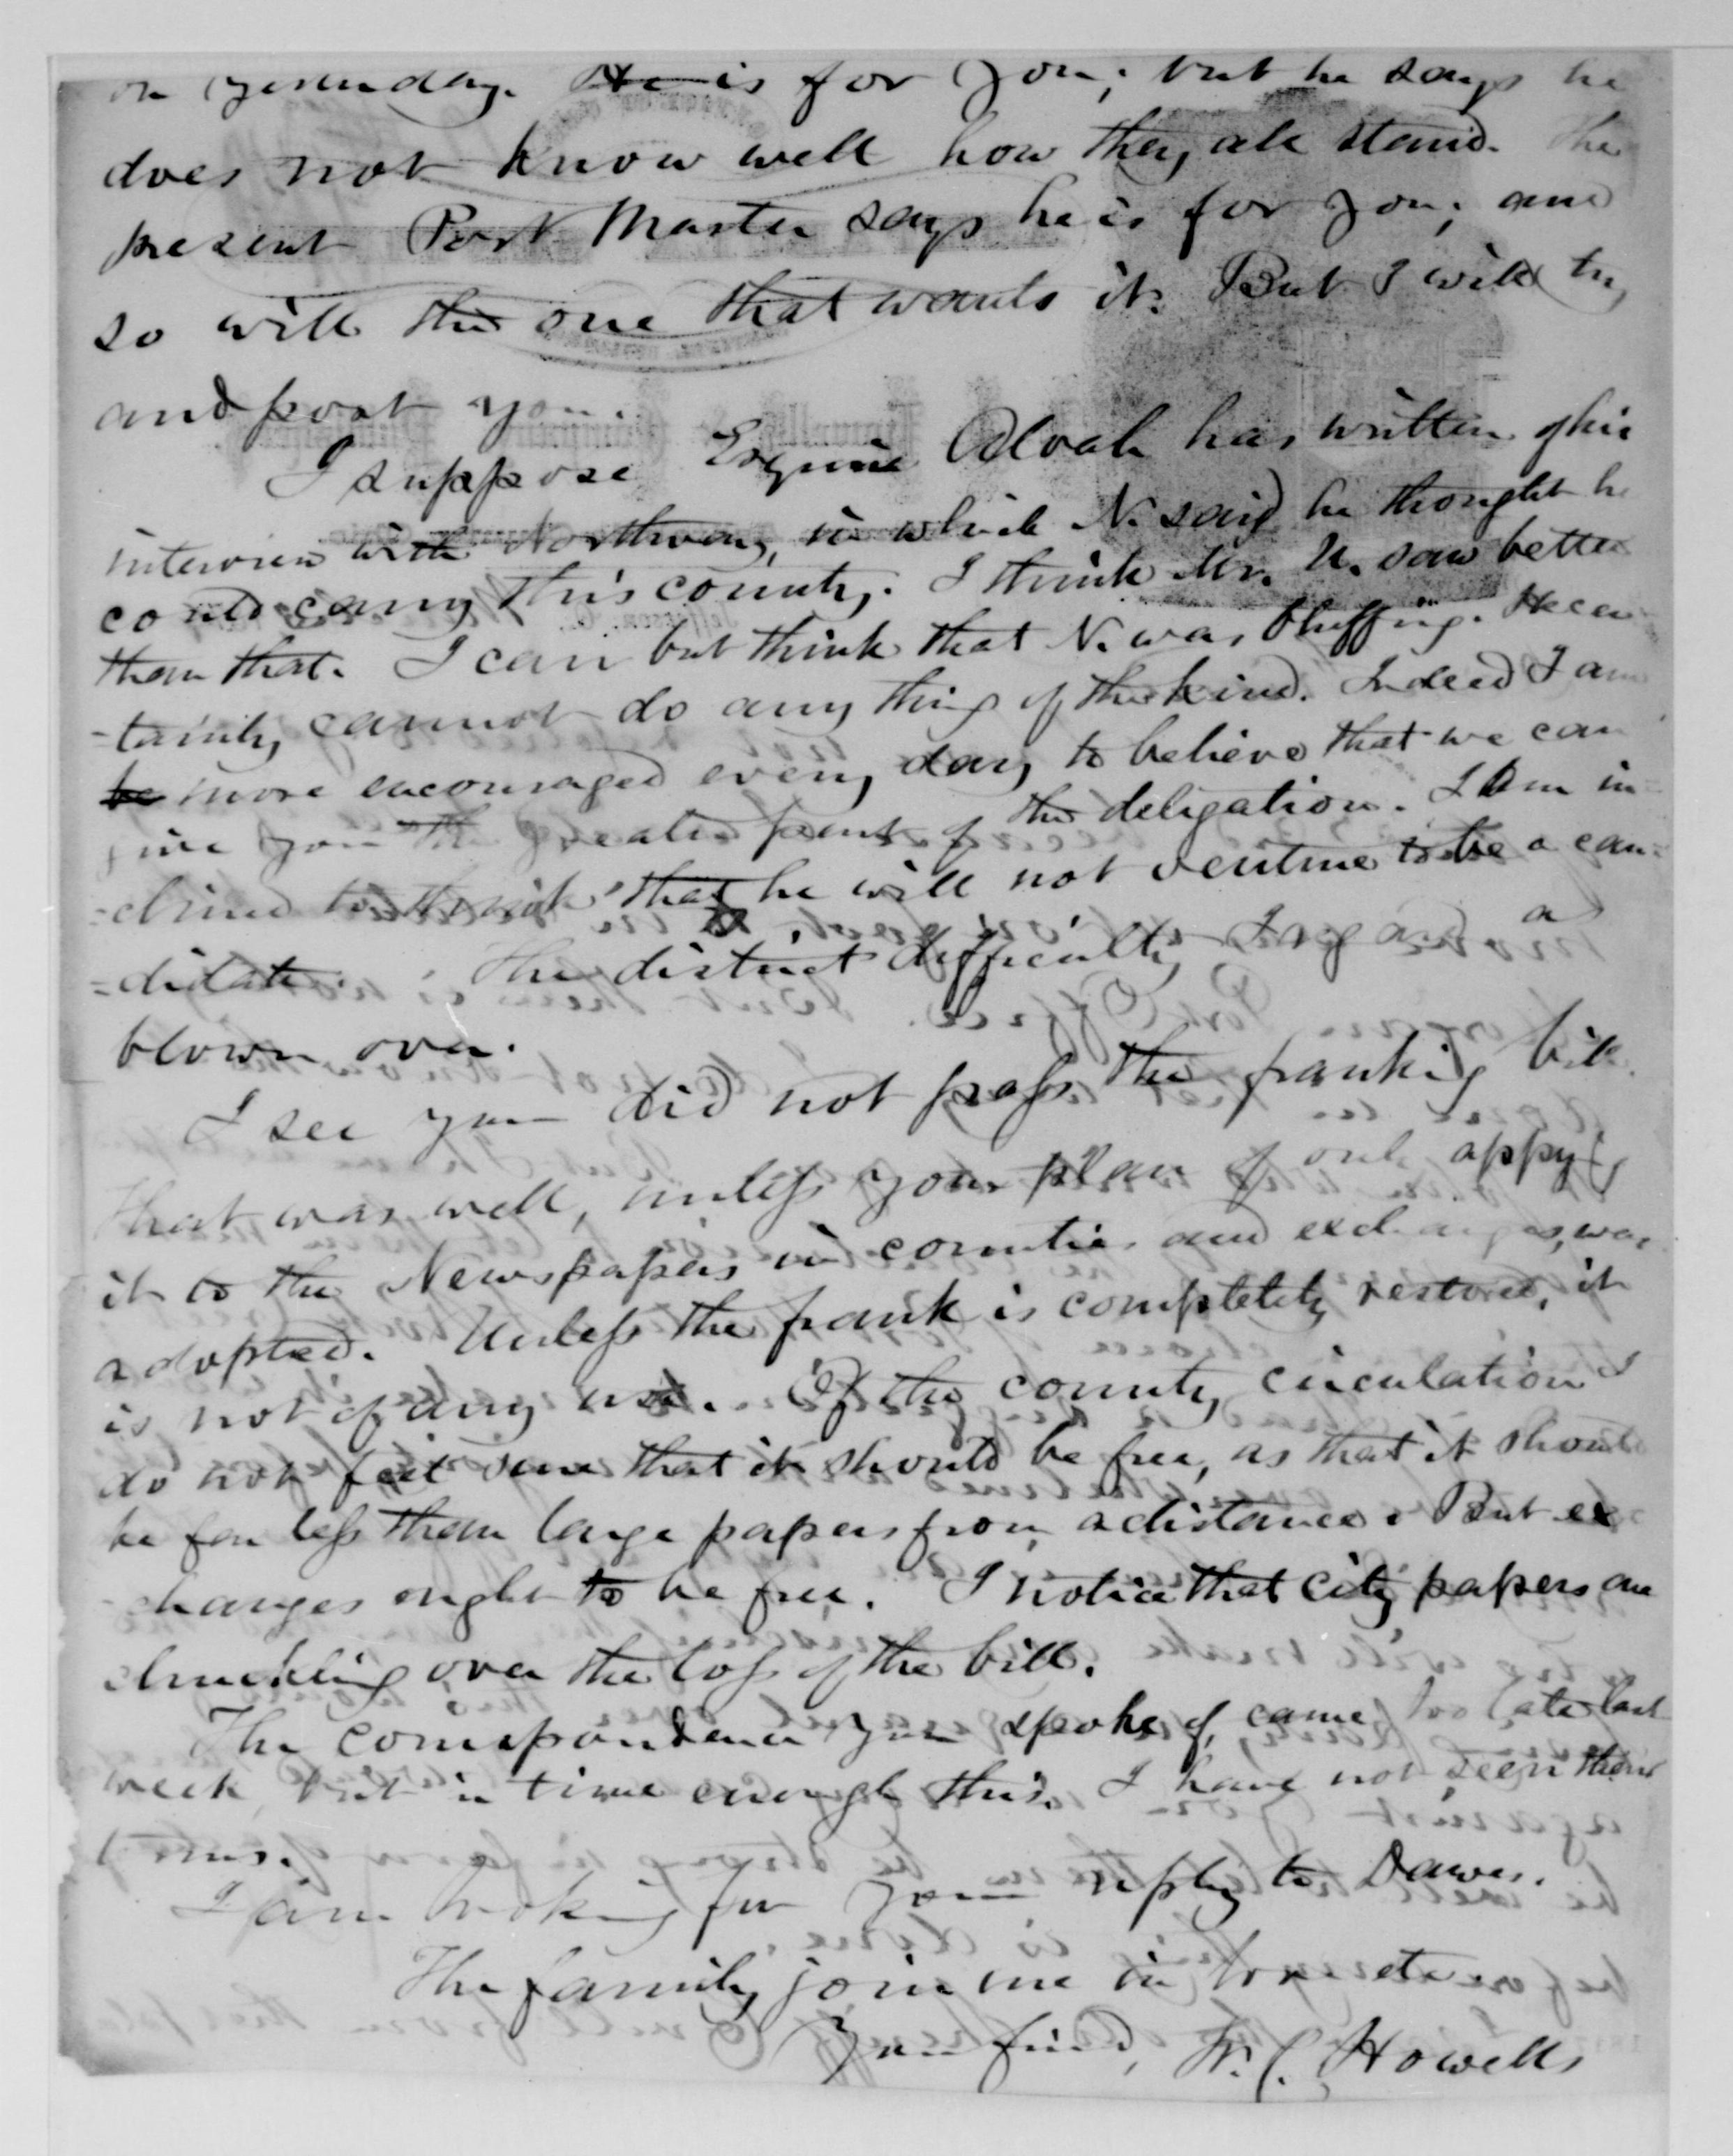 on yesterday. He is for you; but he says he
does not know well how they all stand. The
present Post Master says he is for you; and
so will the one that wants it. But I will try
and post you.
I suppose Esquire Alvah has written of his
interview with Northway, in which N. said he thought he
could carry this county. I think Mr. U. saw better
than that. I can but think that N. was bluffing. He cer-
-tainly cannot do any thing of the kind. Indeed I am
be more encouraged every day to believe that we can
give you the greater part of the deligation. I am in-
-clined to think that he will not venture to be a can-
-didate. The district difficulty I regard as
blown over.
I see you did not pass the franking bill.
That was well, unless your plan of only appyg
it to the Newspapers in counties and exchanges, was
adopted. Unless the frank is completely restored, it
is not of any use. Of the county circulation I
do not feel sure that it should be free, as that it should
be far less than large papers from a distance. But ex
-changes ought to be free. I notice that city papers are
chuckling over the loss of the bill.
The correspondence you spoke of, came too late last
week, but in time enough this. I have not seen
I am looking for your reply to Dawes.
The family join me in love etc.
Your friend, W. C. Howells